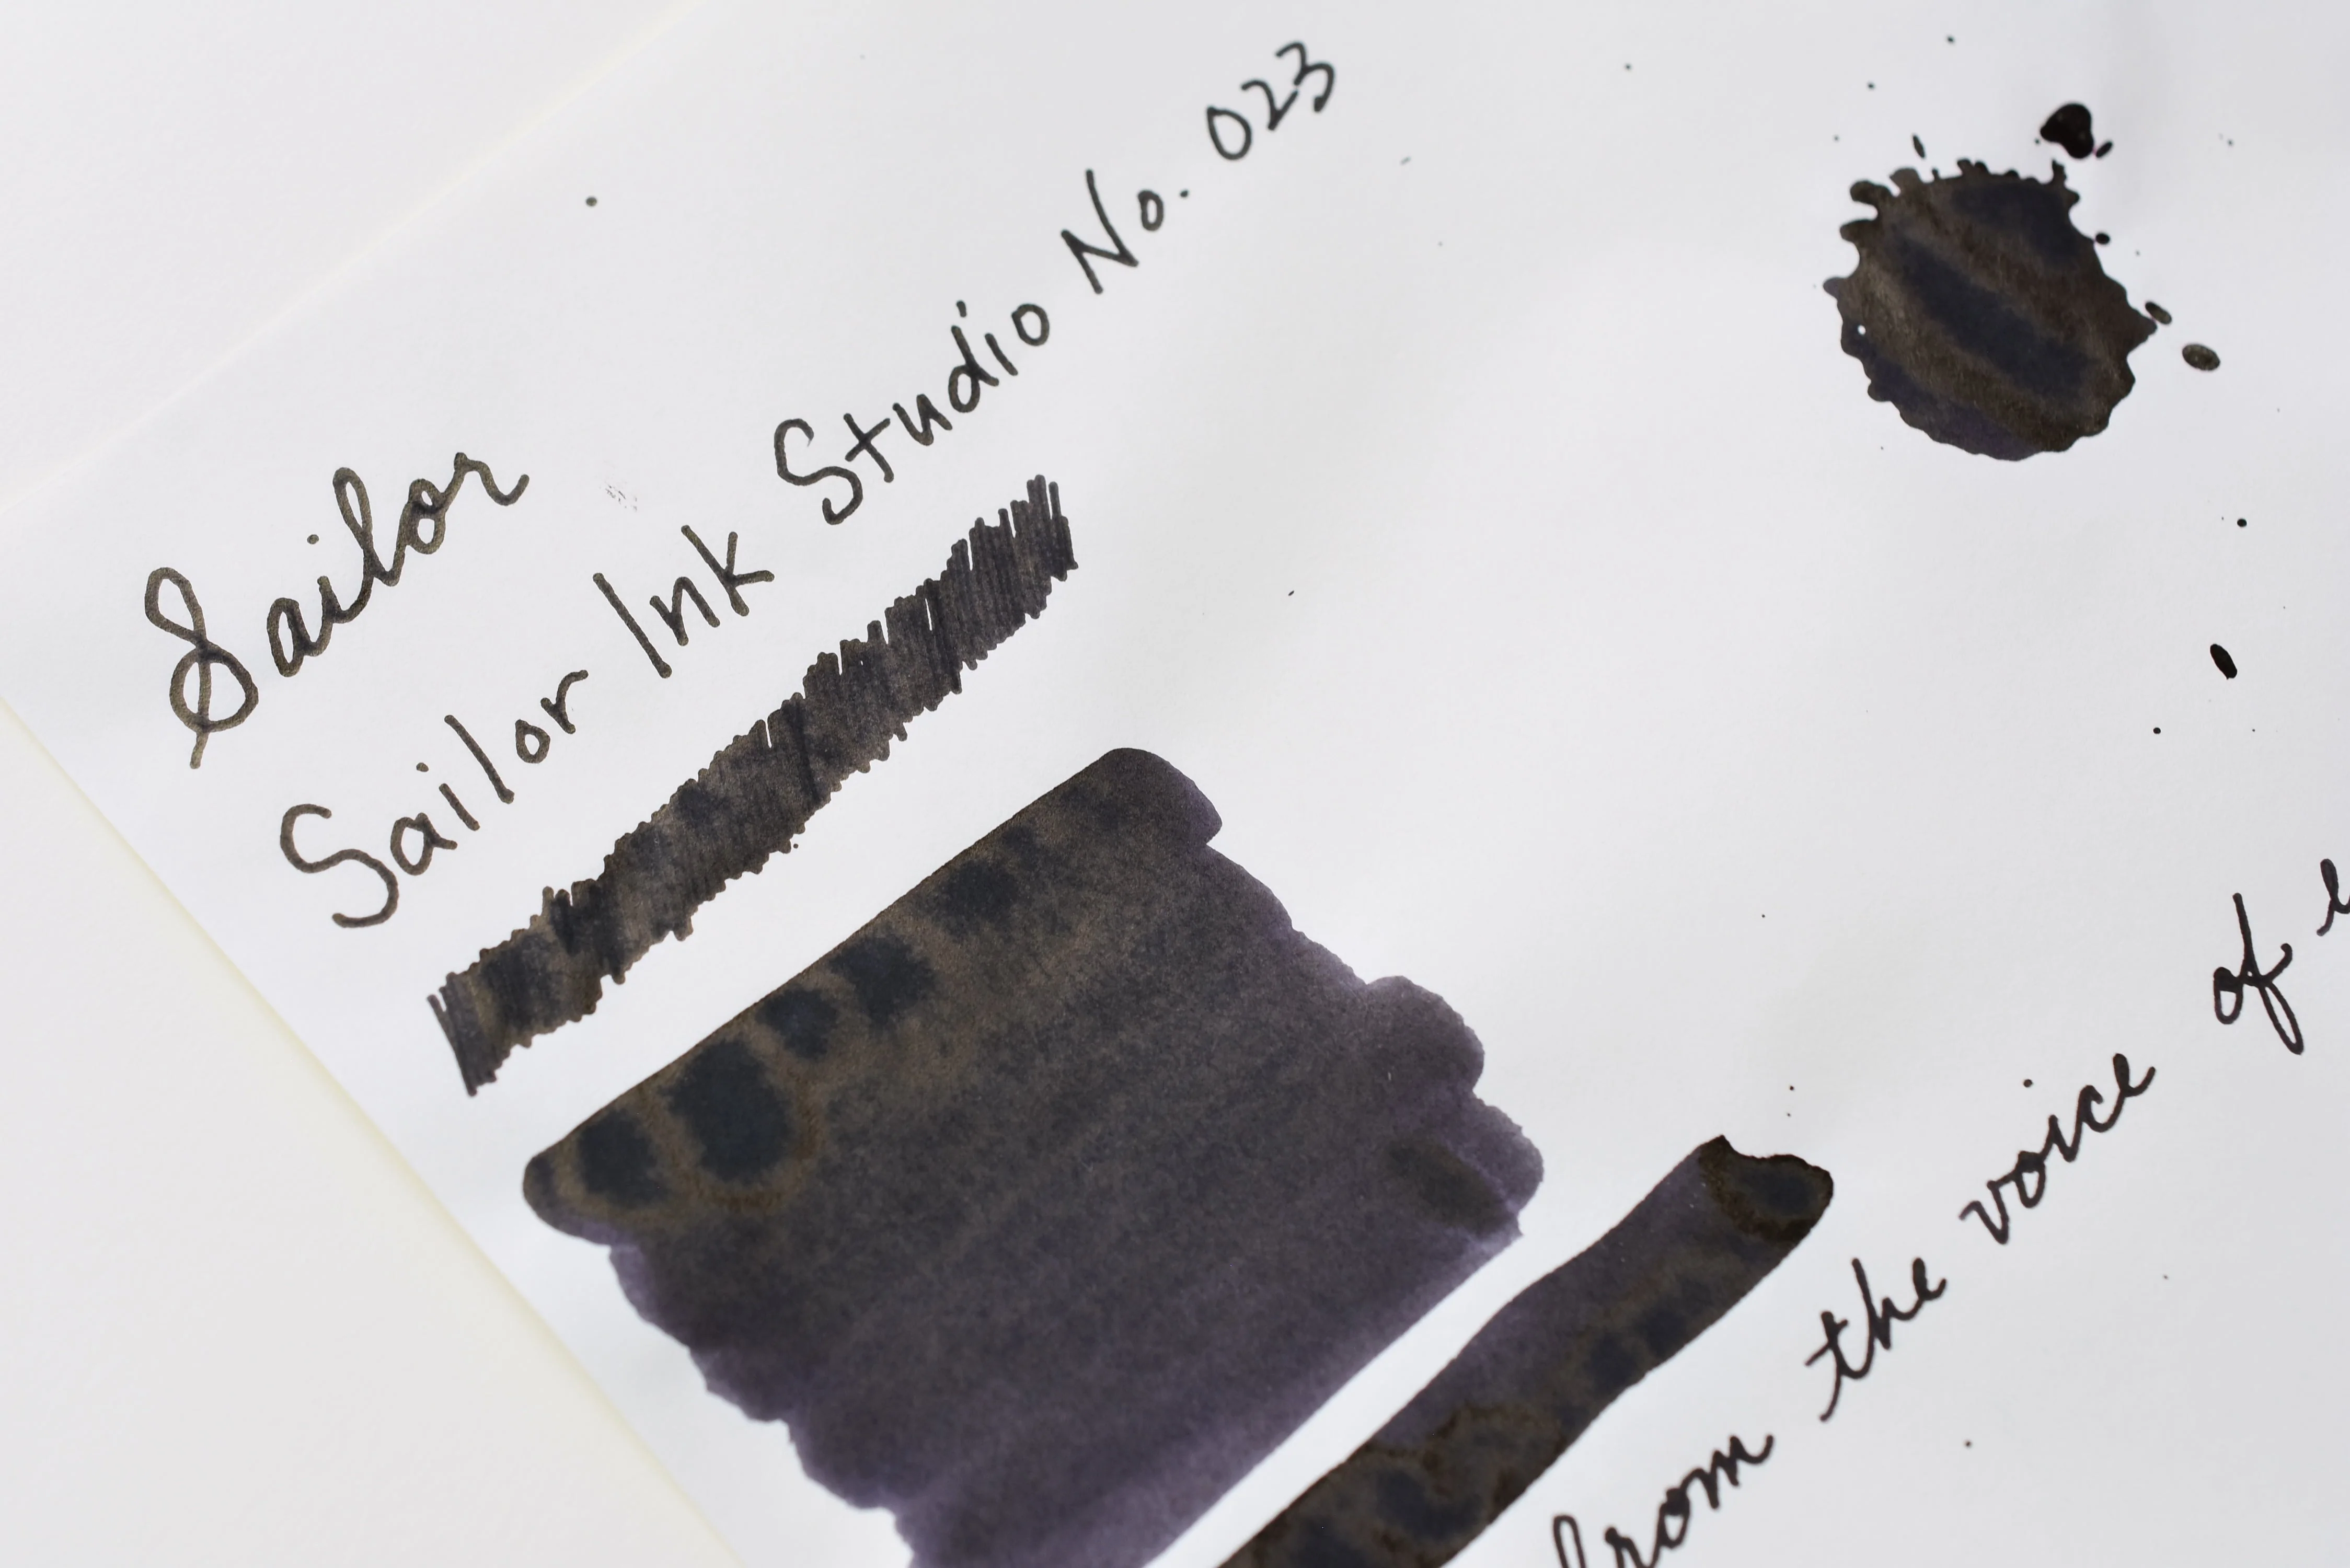 Sailor
Sailor Ink Studio No. 023
from the voice of